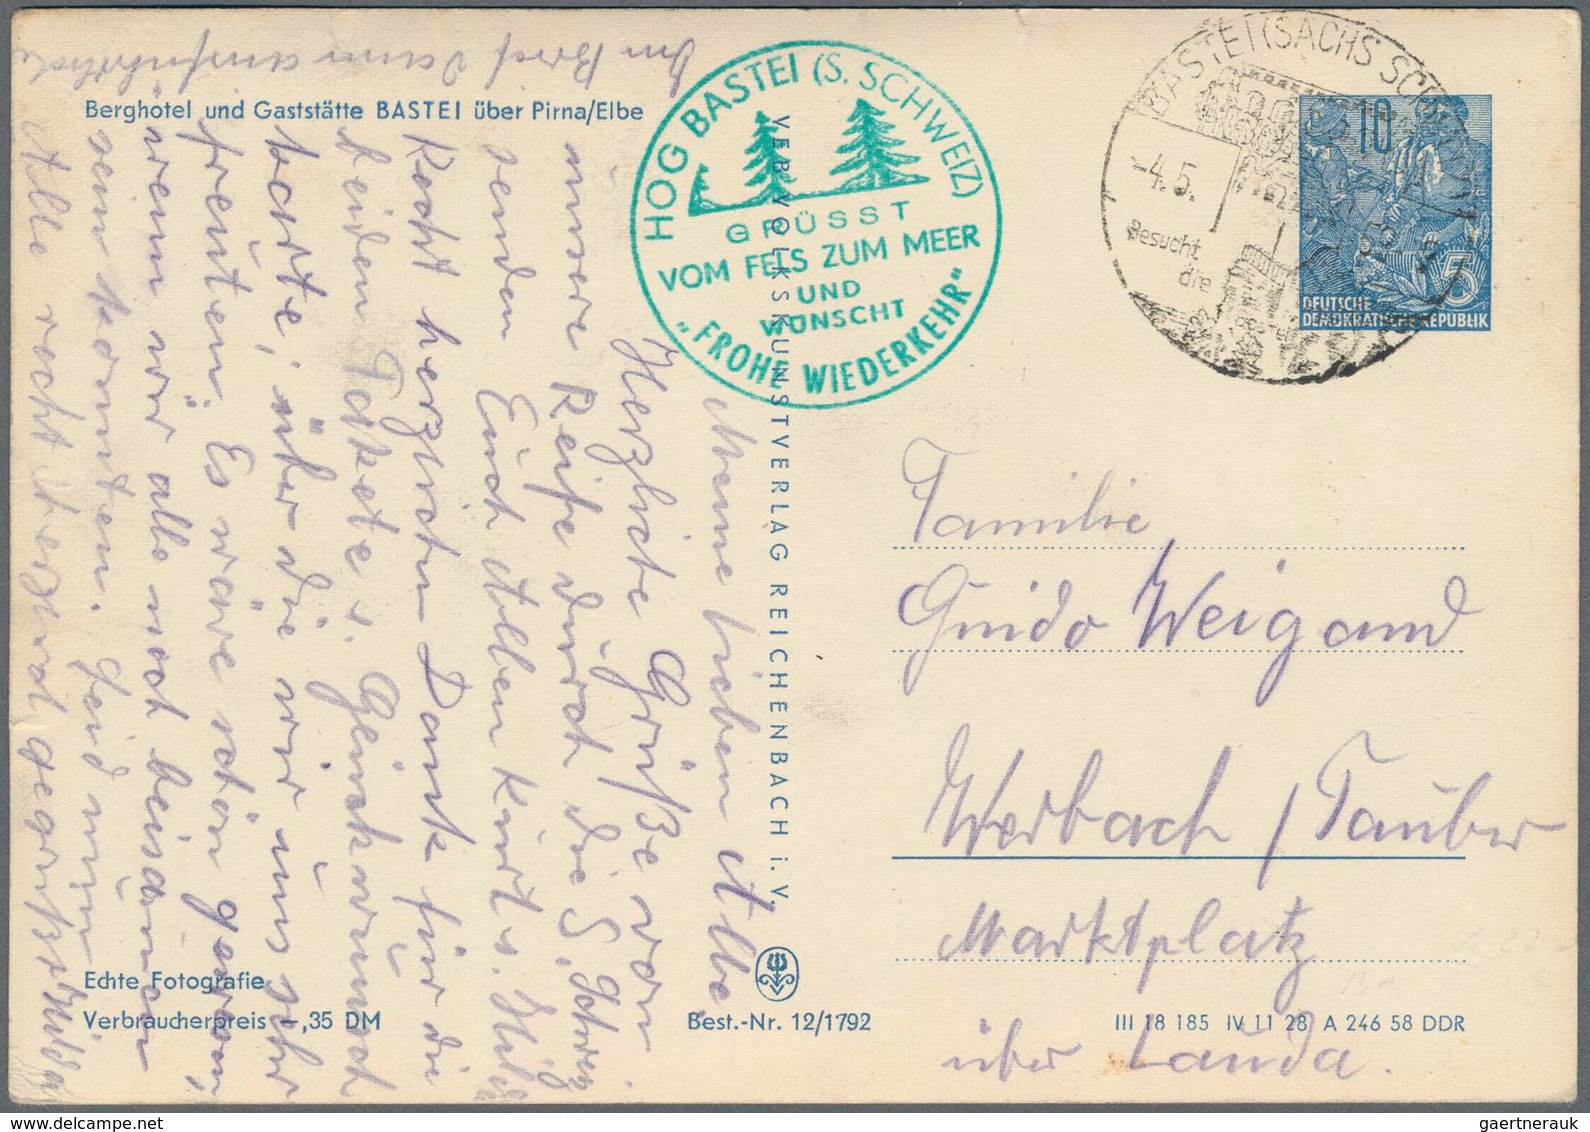 Berghotel und Gaststätte BASTEI über Pirna/Elbe
Im Brief dann ausführlich
Meine lieben Albe
Herzliche Grüße von
unsere Reise durch die S. Schweiz
senden Euch Allen Kurt u. Hilda
Recht herzlichen Dank für die
beiden Pakete u. Glückwunsch
karte, über die wir uns sehr
freuten. Es wäre schön gewesen,
wenn wir alle noch beisammen
sein könnten. Seid nun
Alle recht herzlich gegrüßt Hilda
Echte Fotografie
Verbraucherpreis –,35 DM
VEB VOLKSKUNSTVERLAG REICHENBACH i. V.
Best.-Nr. 12/1792
HOG BASTEI (S. SCHWEIZ)
GRÜSST
VOM FELS ZUM MEER
UND
WÜNSCHT
„FROHE WIEDERKEHR"
BASTEI (SÄCHS SCH
-4.5.
Besucht
die
10
5
DEUTSCHE
DEMOKRATISCHE REPUBLIK
Familie
Guido Weigand
Werbach / Tauber
Marktplatz
über Lauda.
III 18 185 IV 11 28 A 246 58 DDR
gaertnerauk@delcampe.net